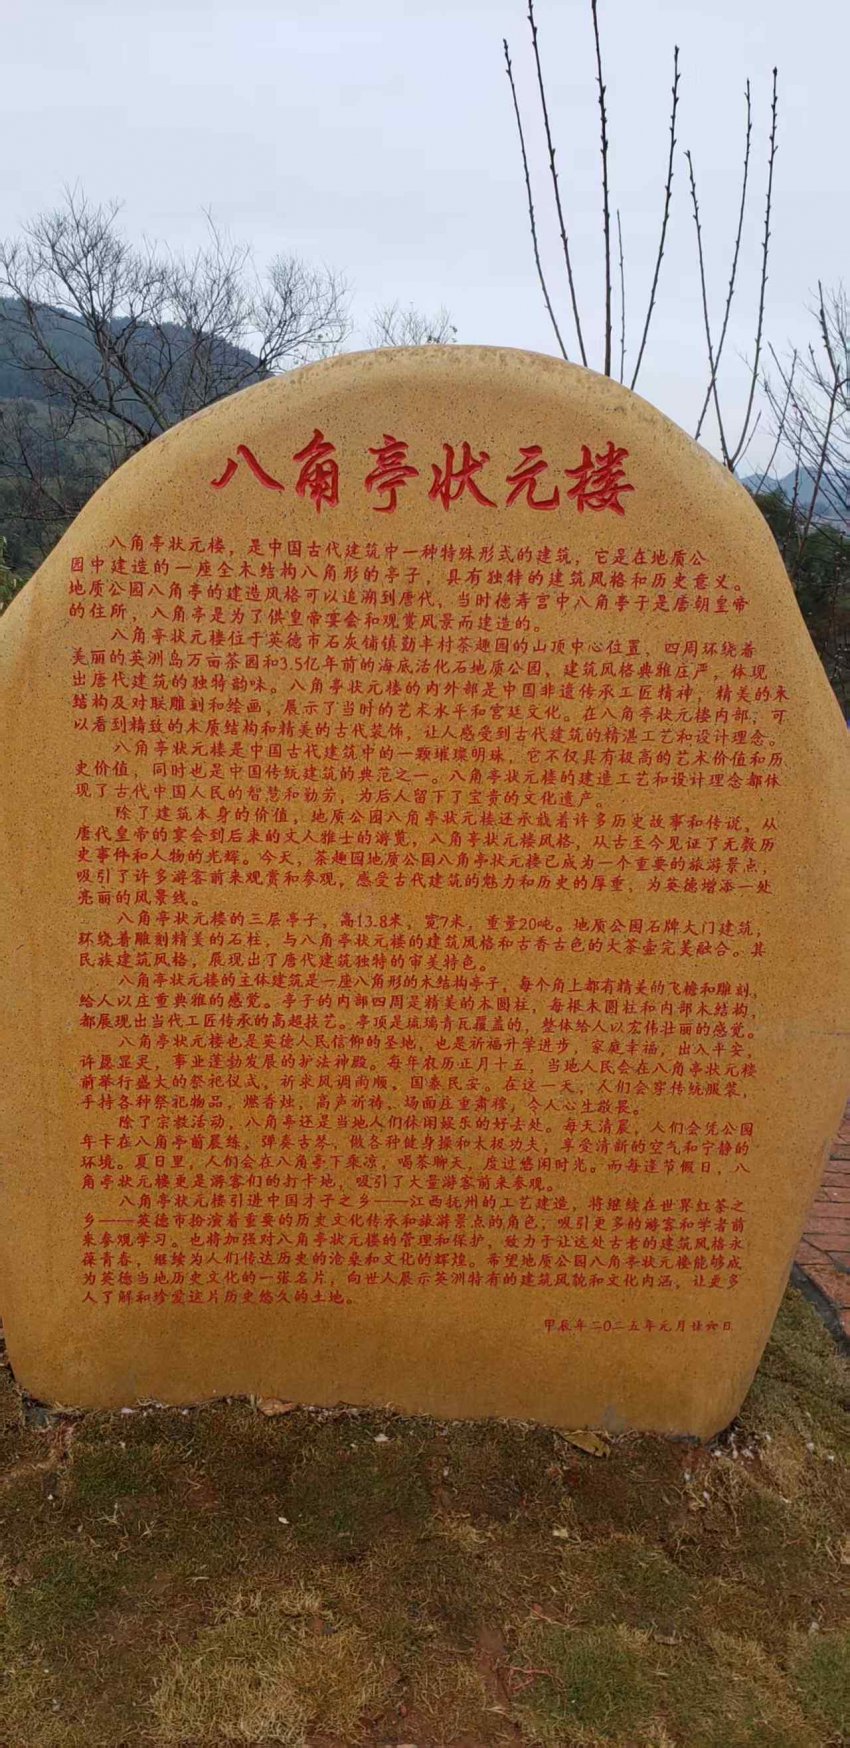 八角亭状元楼
八角亭状元楼，是中国古代建筑中一种特殊形式的建筑，它是在地质公
园中建造的一座全木结构八角形的亭子，具有独特的建筑风格和历史意义。
地质公园八角亭的建造风格可以追溯到唐代，当时德寿宫中八角亭子是唐朝皇帝
的住所，八角亭是为了供皇帝宴会和观赏风景而建造的。
八角亭状元楼位于英德市石灰铺镇勤丰村茶趣园的山顶中心位置，四周环绕着
美丽的英洲岛万亩茶园和3.5亿年前的海底活化石地质公园，建筑风格典雅庄严，体现
出唐代建筑的独特韵味。八角亭状元楼的内外部是中国非遗传承工匠精神，精美的木
结构及对联雕刻和绘画，展示了当时的艺术水平和宫廷文化。在八角亭状元楼内部，可
以看到精致的木质结构和精美的古代装饰，让人感受到古代建筑的精湛工艺和设计理念。
八角亭状元楼是中国古代建筑中的一颗璀璨明珠，它不仅具有极高的艺术价值和历
史价值，同时也是中国传统建筑的典范之一。八角亭状元楼的建造工艺和设计理念都体
现了古代中国人民的智慧和勤劳，为后人留下了宝贵的文化遗产。
除了建筑本身的价值，地质公园八角亭状元楼还承载着许多历史故事和传说，从
唐代皇帝的宴会到后来的文人雅士的游览，八角亭状元楼风格，从古至今见证了无数历
史事件和人物的光辉。今天，茶趣园地质公园八角亭状元楼已成为一个重要的旅游景点，
吸引了许多游客前来观赏和参观，感受古代建筑的魅力和历史的厚重，为英德增添一处
亮丽的风景线。
八角亭状元楼的三层亭子，高13.8米，宽7米，重量20吨。地质公园石牌大门建筑，
环绕着雕刻精美的石柱，与八角亭状元楼的建筑风格和古香古色的大茶壶完美融合。其
民族建筑风格，展现出了唐代建筑独特的审美特色。
八角亭状元楼的主体建筑是一座八角形的木结构亭子，每个角上都有精美的飞檐和雕刻，
给人以庄重典雅的感觉。亭子的内部四周是精美的木圆柱，每根木圆柱和内部木结构，
都展现出当代工匠传承的高超技艺。亭顶是琉璃青瓦覆盖的，整体给人以宏伟壮丽的感觉。
八角亭状元楼也是英德人民信仰的圣地，也是祈福升学进步，家庭幸福，出入平安，
许愿显灵，事业蓬勃发展的护法神殿。每年农历正月十五，当地人民会在八角亭状元楼
前举行盛大的祭祀仪式，祈求风调雨顺，国泰民安。在这一天，人们会穿传统服装，
手持各种祭祀物品，燃香烛，高声祈祷，场面庄重肃穆，令人心生敬畏。
除了宗教活动，八角亭还是当地人们休闲娱乐的好去处。每天清晨，人们会凭公园
年卡在八角亭前晨练，弹奏古琴，做各种健身操和太极功夫，享受清新的空气和宁静的
环境。夏日里，人们会在八角亭下乘凉，喝茶聊天，度过悠闲时光。而每逢节假日，八
角亭状元楼更是游客们的打卡地，吸引了大量游客前来参观。
八角亭状元楼引进中国才子之乡——江西抚州的工艺建造，将继续在世界红茶之
乡——英德市扮演着重要的历史文化传承和旅游景点的角色，吸引更多的游客和学者前
来参观学习。也将加强对八角亭状元楼的管理和保护，致力于让这处古老的建筑风格永
葆青春，继续为人们传达历史的沧桑和文化的辉煌。希望地质公园八角亭状元楼能够成
为英德当地历史文化的一张名片，向世人展示英洲特有的建筑风貌和文化内涵，让更多
人了解和珍爱这片历史悠久的土地。
甲辰年二0二五年元月廿六日